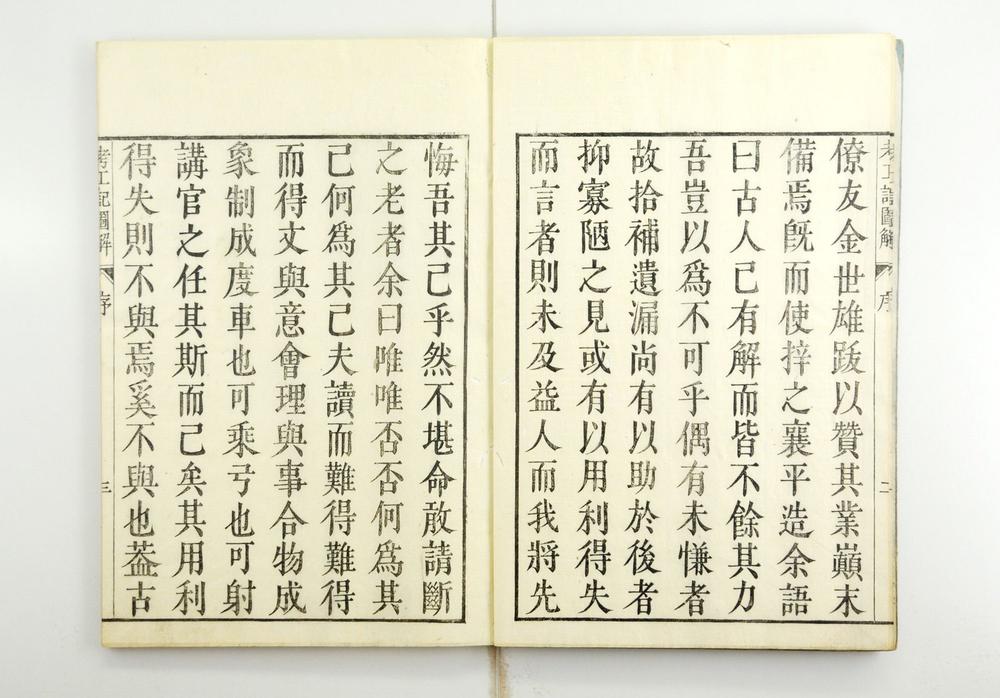 考工記圖解
序
二
僚友金世雄跋以贊其業巔末
備焉既而使梓之襄平造余語
曰古人已有解而皆不餘其力
吾豈以爲不可乎偶有未慊者
故拾補遺漏尚有以助於後者
抑寡陋之見或有以用利得失
而言者則未及益人而我將先
悔吾其已乎然不堪命敢請斷
之老者余曰唯唯否否何爲其
已何爲其已夫讀而難得難得
而得文與意會理與事合物成
象制成度車也可乘弓也可射
講官之任其斯而已矣其用利
得失則不與焉奚不與也葢古
考工記圖解
序
三